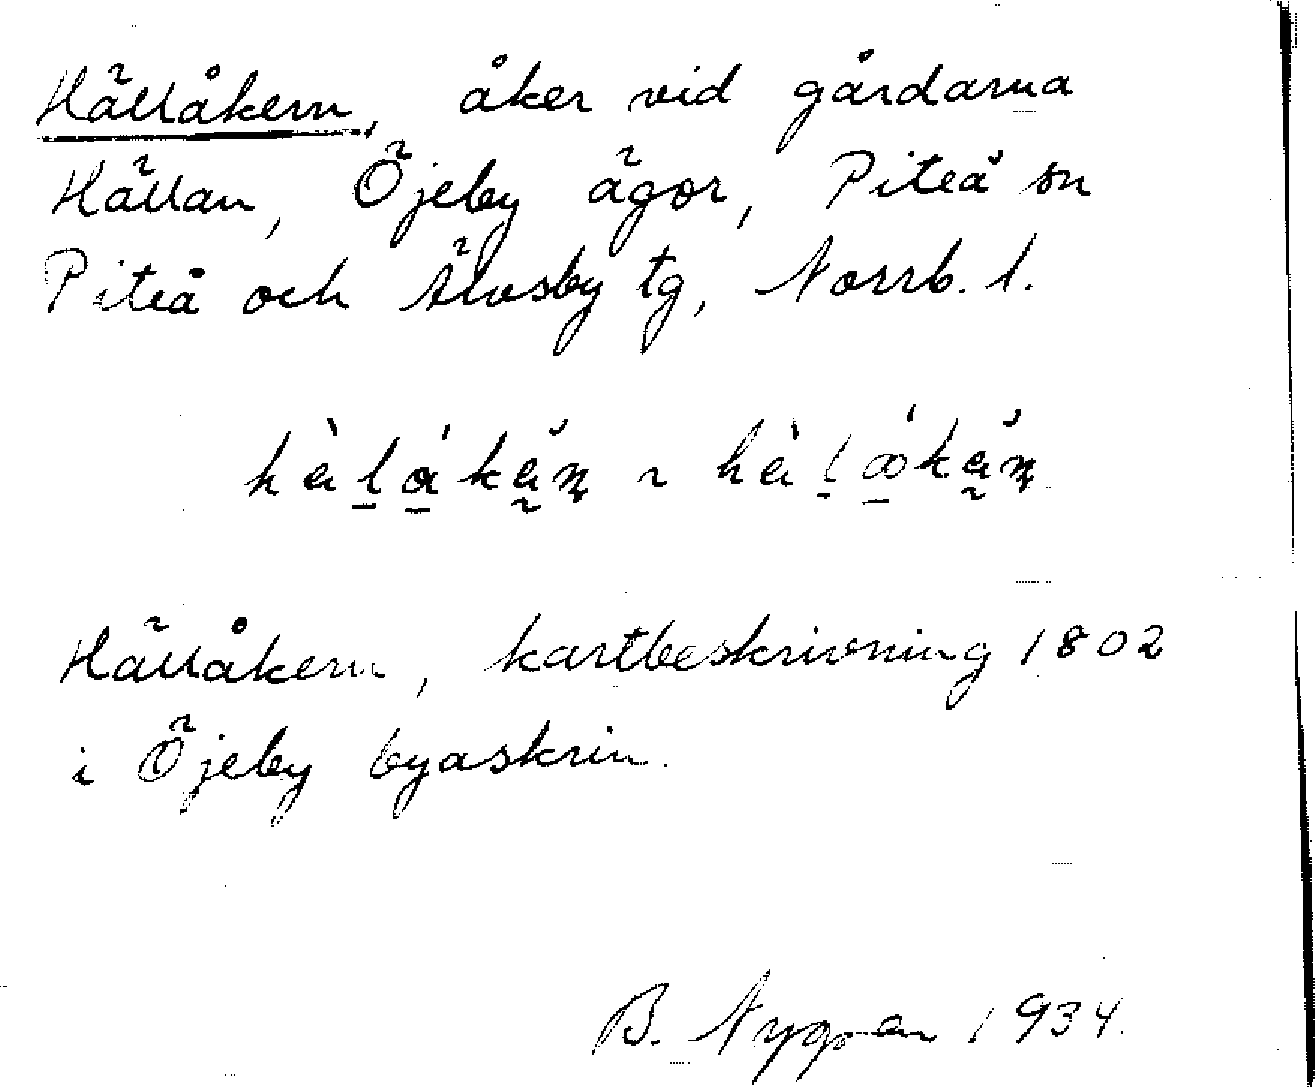 Hällåkern, åker vid gårdarna
Hällan, Öjeby ägor, Piteå sn
Piteå och Älvsby tg, Norrb. l.
Hällåkern, kartbeskrivning 1802
i Öjeby byaskrin.
B. Nygren 1934.